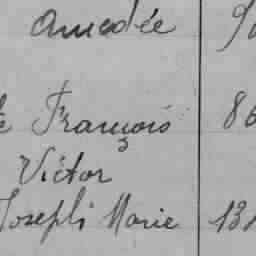 Amédée
François 86
Victor
Joseph Marie 131